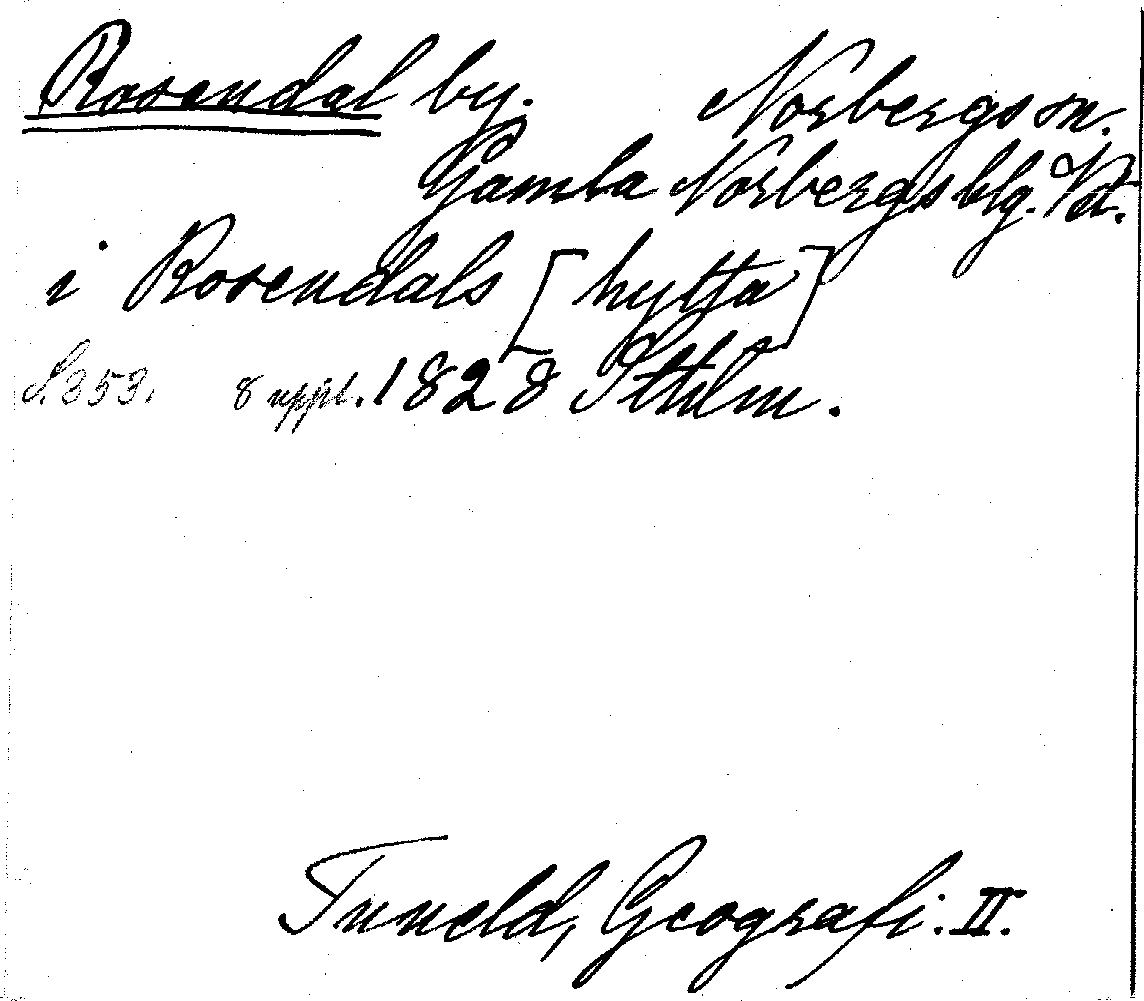 Rosendal by. Norbergs sn.
Gamla Norbergs blg. Vstm.
i Rosendals [hytta]
S. 353. 8 uppl. 1828 Sthlm.
Tuneld, Geografi. II.